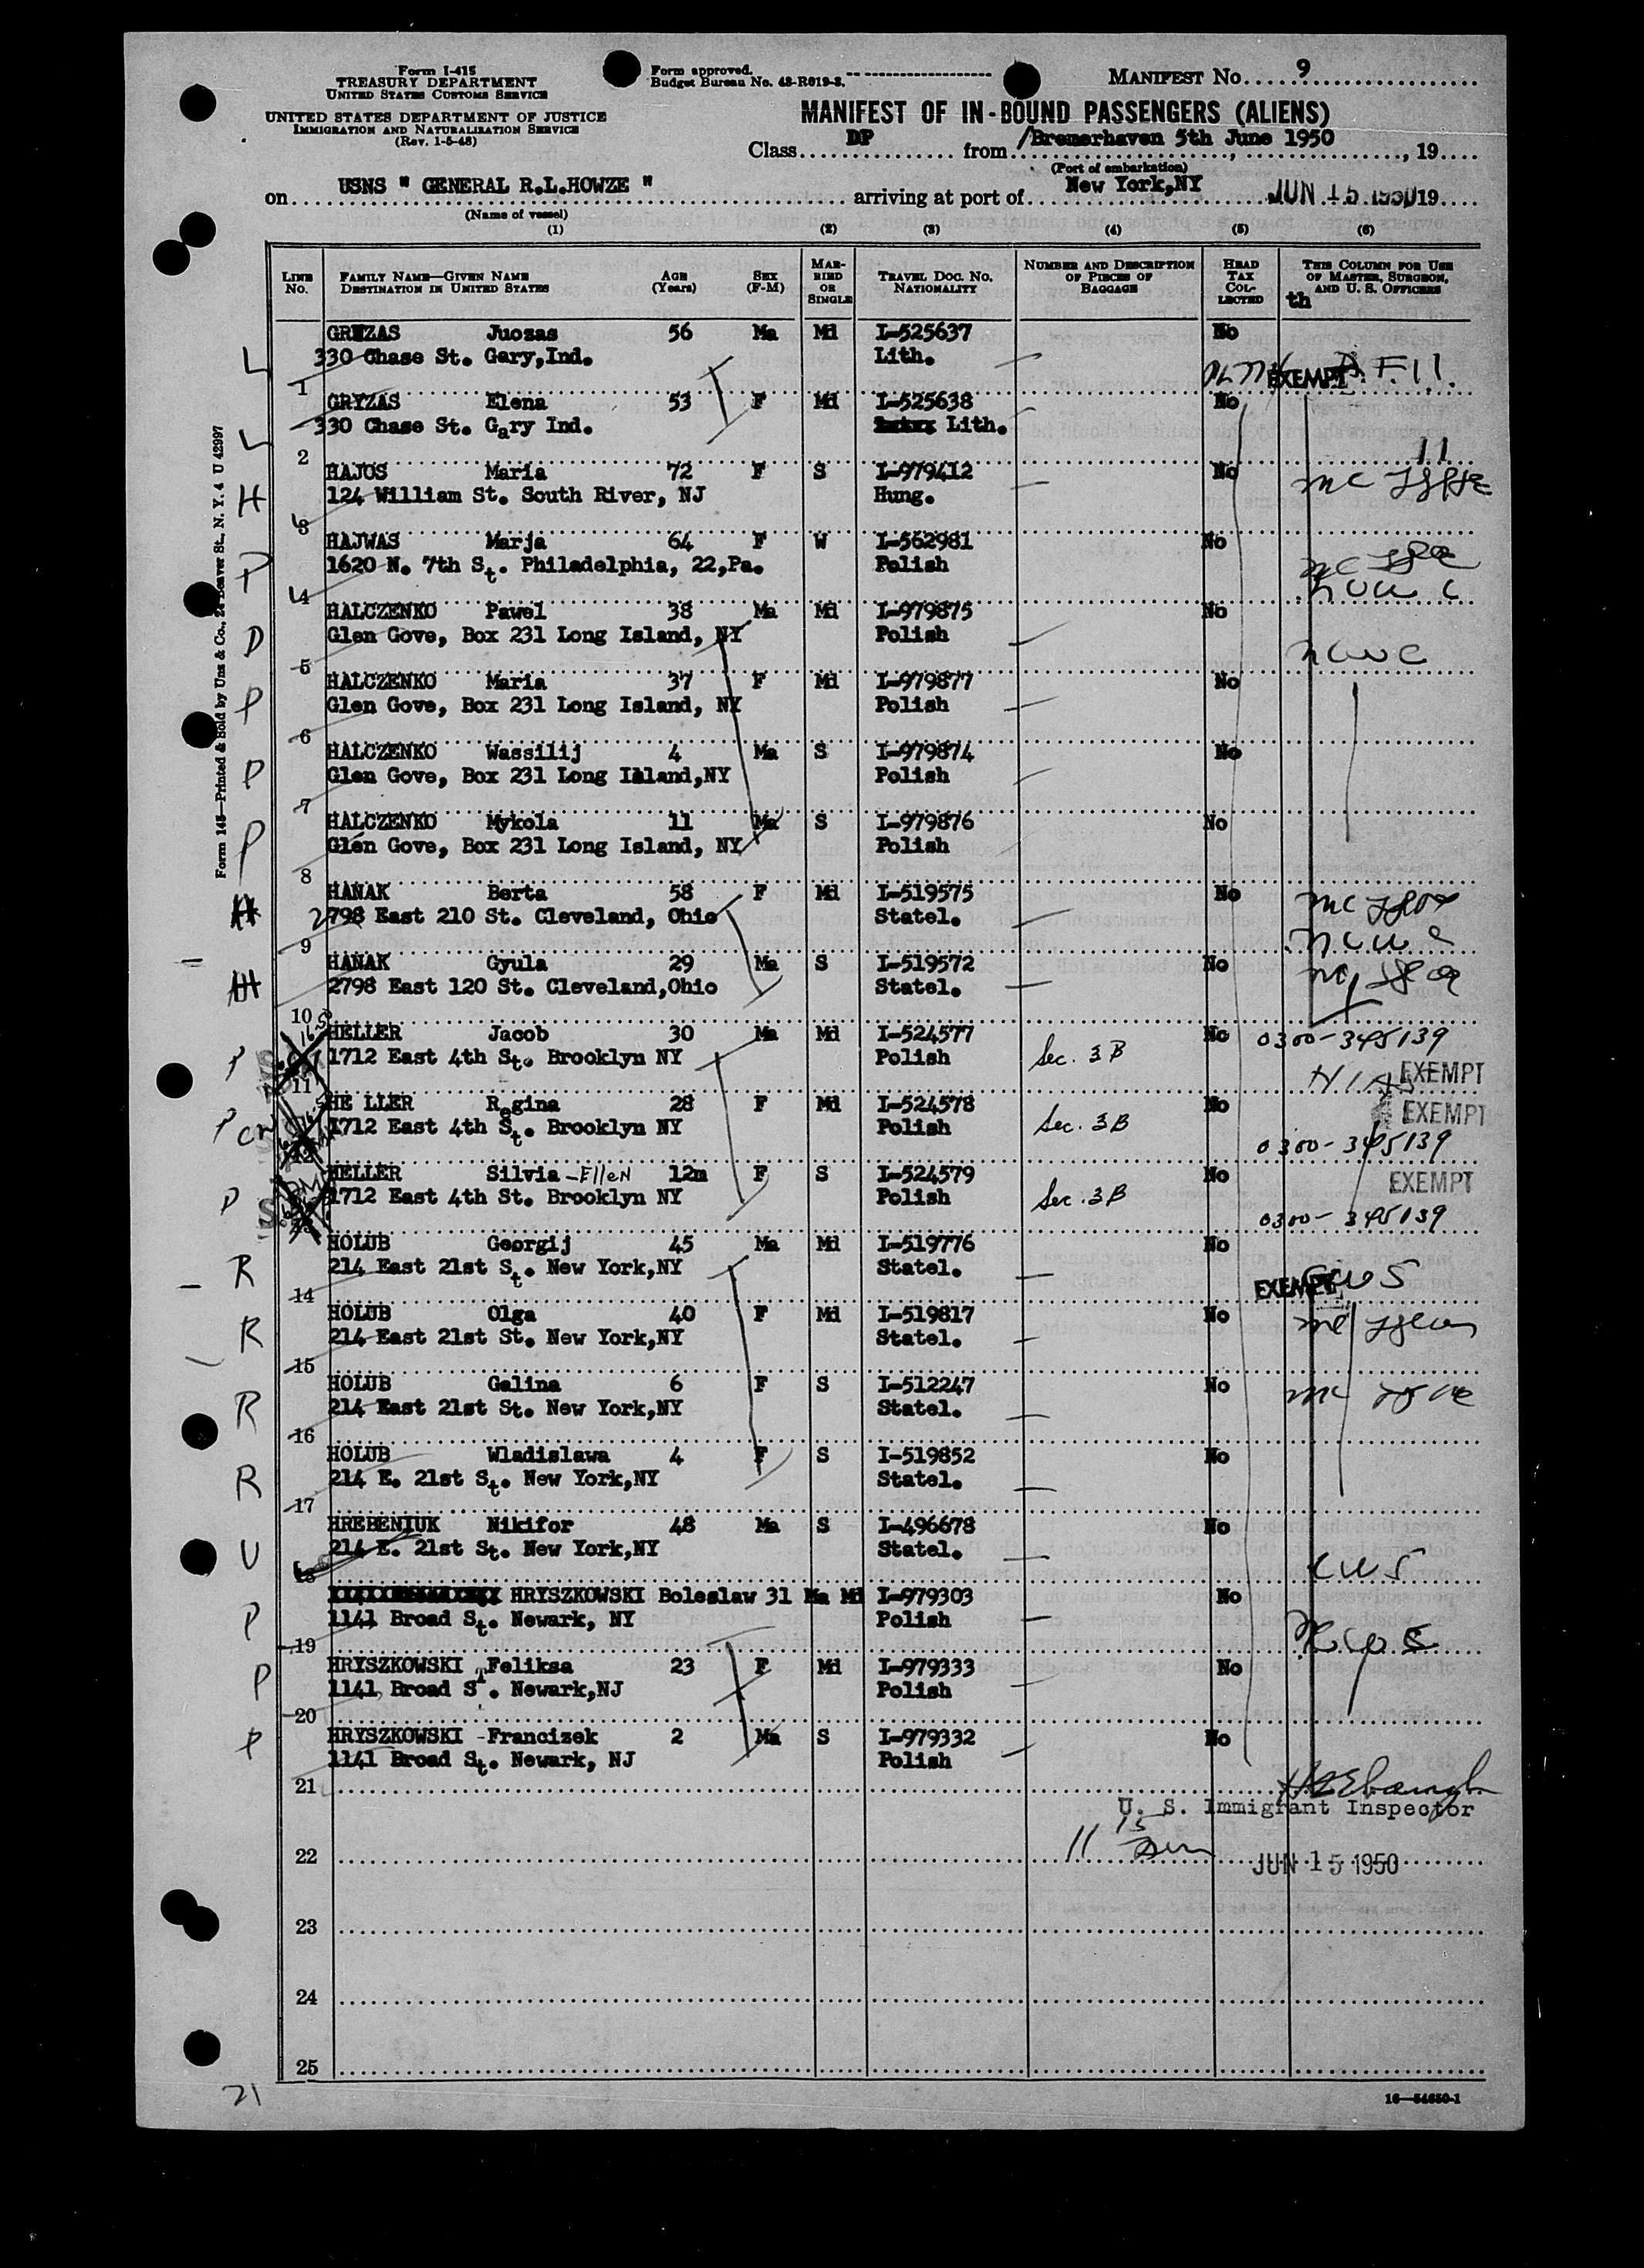 Form I-415
TREASURY DEPARTMENT
UNITED STATES CUSTOMS SERVICE
UNITED STATES DEPARTMENT OF JUSTICE
IMMIGRATION AND NATURALIZATION SERVICE
(Rev. 1-5-48)
Form approved.
Budget Bureau No. 43-R019-3.
MANIFEST No. 9
MANIFEST OF IN-BOUND PASSENGERS (ALIENS)
Class DP from /Bremerhaven 5th June 1950, 19
(Port of embarkation)
on USNS " GENERAL R.L.HOWZE " arriving at port of New York,NY JUN 15 1950 19
(Name of vessel)
(1) (2) (3) (4) (5) (6)
LINE No. FAMILY NAME—GIVEN NAME DESTINATION IN UNITED STATES AGE (Years) SEX (F-M) MARRIED OR SINGLE TRAVEL DOC. NO. NATIONALITY NUMBER AND DESCRIPTION OF PIECES OF BAGGAGE HEAD TAX COLLECTED THIS COLUMN FOR USE OF MASTER, SURGEON, AND U. S. OFFICERS
th
GRYZAS Juozas 56 Ma Md I-525637 No
L 330 Chase St. Gary,Ind. Lith. EXEMPT
1
GRYZAS Elena 53 F Md I-525638 No
L 330 Chase St. Gary Ind. Lith.
2 11
HAJOS Maria 72 F S I-979412 No
H 124 William St. South River, NJ Hung.
3
HAJWAS Marja 64 F W I-562981 No
P 1620 N. 7th St. Philadelphia, 22,Pa. Polish
4
HALCZENKO Pawel 38 Ma Md I-979875 No
P Glen Gove, Box 231 Long Island, NY Polish
5
HALCZENKO Maria 37 F Md I-979877 No
P Glen Gove, Box 231 Long Island, NY Polish
6
HALCZENKO Wassilij 4 Ma S I-979874 No
P Glen Gove, Box 231 Long Island,NY Polish
7
HALCZENKO Mykola 11 Ma S I-979876 No
P Glen Gove, Box 231 Long Island, NY Polish
8
HANAK Berta 58 F Md I-519575 No
2798 East 210 St. Cleveland, Ohio Statel.
9
HANAK Gyula 29 Ma S I-519572 No
2798 East 120 St. Cleveland,Ohio Statel.
10
HELLER Jacob 30 Ma Md I-524577 No 0300-345139
P 1712 East 4th St. Brooklyn NY Polish Sec. 3B HIAS EXEMPT
11
HE LLER Regina 28 F Md I-524578 No EXEMPT
P 1712 East 4th St. Brooklyn NY Polish Sec. 3B 0300-345139
12
HELLER Silvia-Ellen 12m F S I-524579 No EXEMPT
P 1712 East 4th St. Brooklyn NY Polish Sec. 3B 0300-345139
HOLUB Georgij 45 Ma Md I-519776 No
R 214 East 21st St. New York,NY Statel. EXEMPT CWS
14
HOLUB Olga 40 F Md I-519817 No
R 214 East 21st St. New York,NY Statel.
15
HOLUB Galina 6 F S I-512247 No
R 214 East 21st St. New York,NY Statel.
16
HOLUB Wladislawa 4 F S I-519852 No
R 214 E. 21st St. New York,NY Statel.
17
HREBENIUK Nikifor 48 Ma S I-496678 No
U 214 E. 21st St. New York,NY Statel. CWS
18
HRYSZKOWSKI Boleslaw 31 Ma Md I-979303 No
P 1141 Broad St. Newark, NY Polish
19
HRYSZKOWSKI Feliksa 23 F Md I-979333 No
P 1141 Broad St. Newark,NJ Polish
20
HRYSZKOWSKI -Francizek 2 Ma S I-979332 No
P 1141 Broad St. Newark, NJ Polish
21
U. S. Immigrant Inspector
22 JUN 15 1950
23
24
25
21
16—54650-1
Form 145—Printed & Sold by Unz & Co., 24 Beaver St., N. Y. 4 U 42997